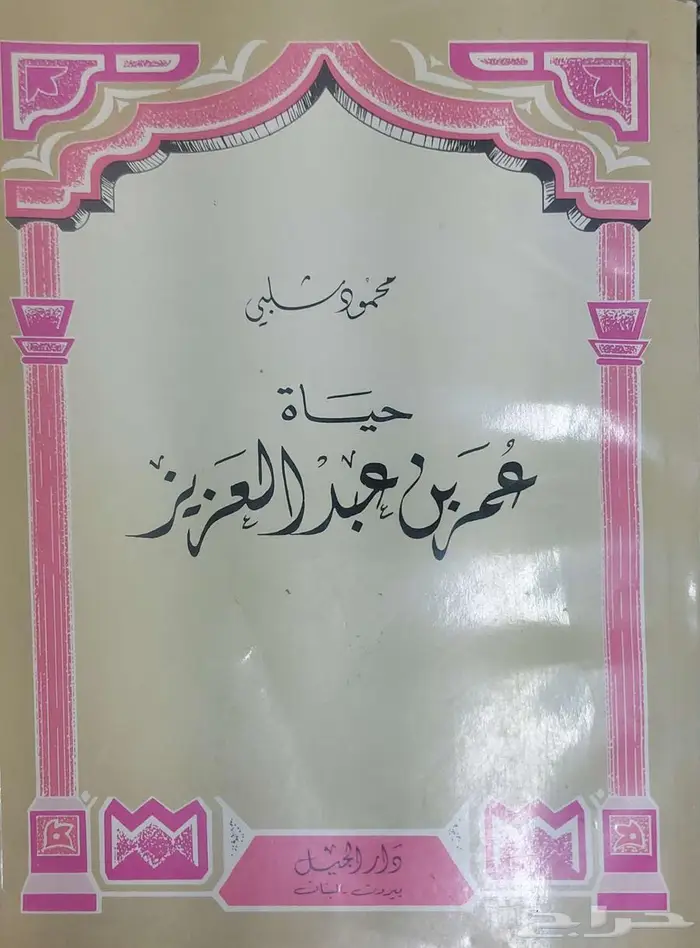 محمود شلبي
حياة
عُمَر بن عَبْد العَزيز
دار الجيل
بيروت - لبنان
حراج